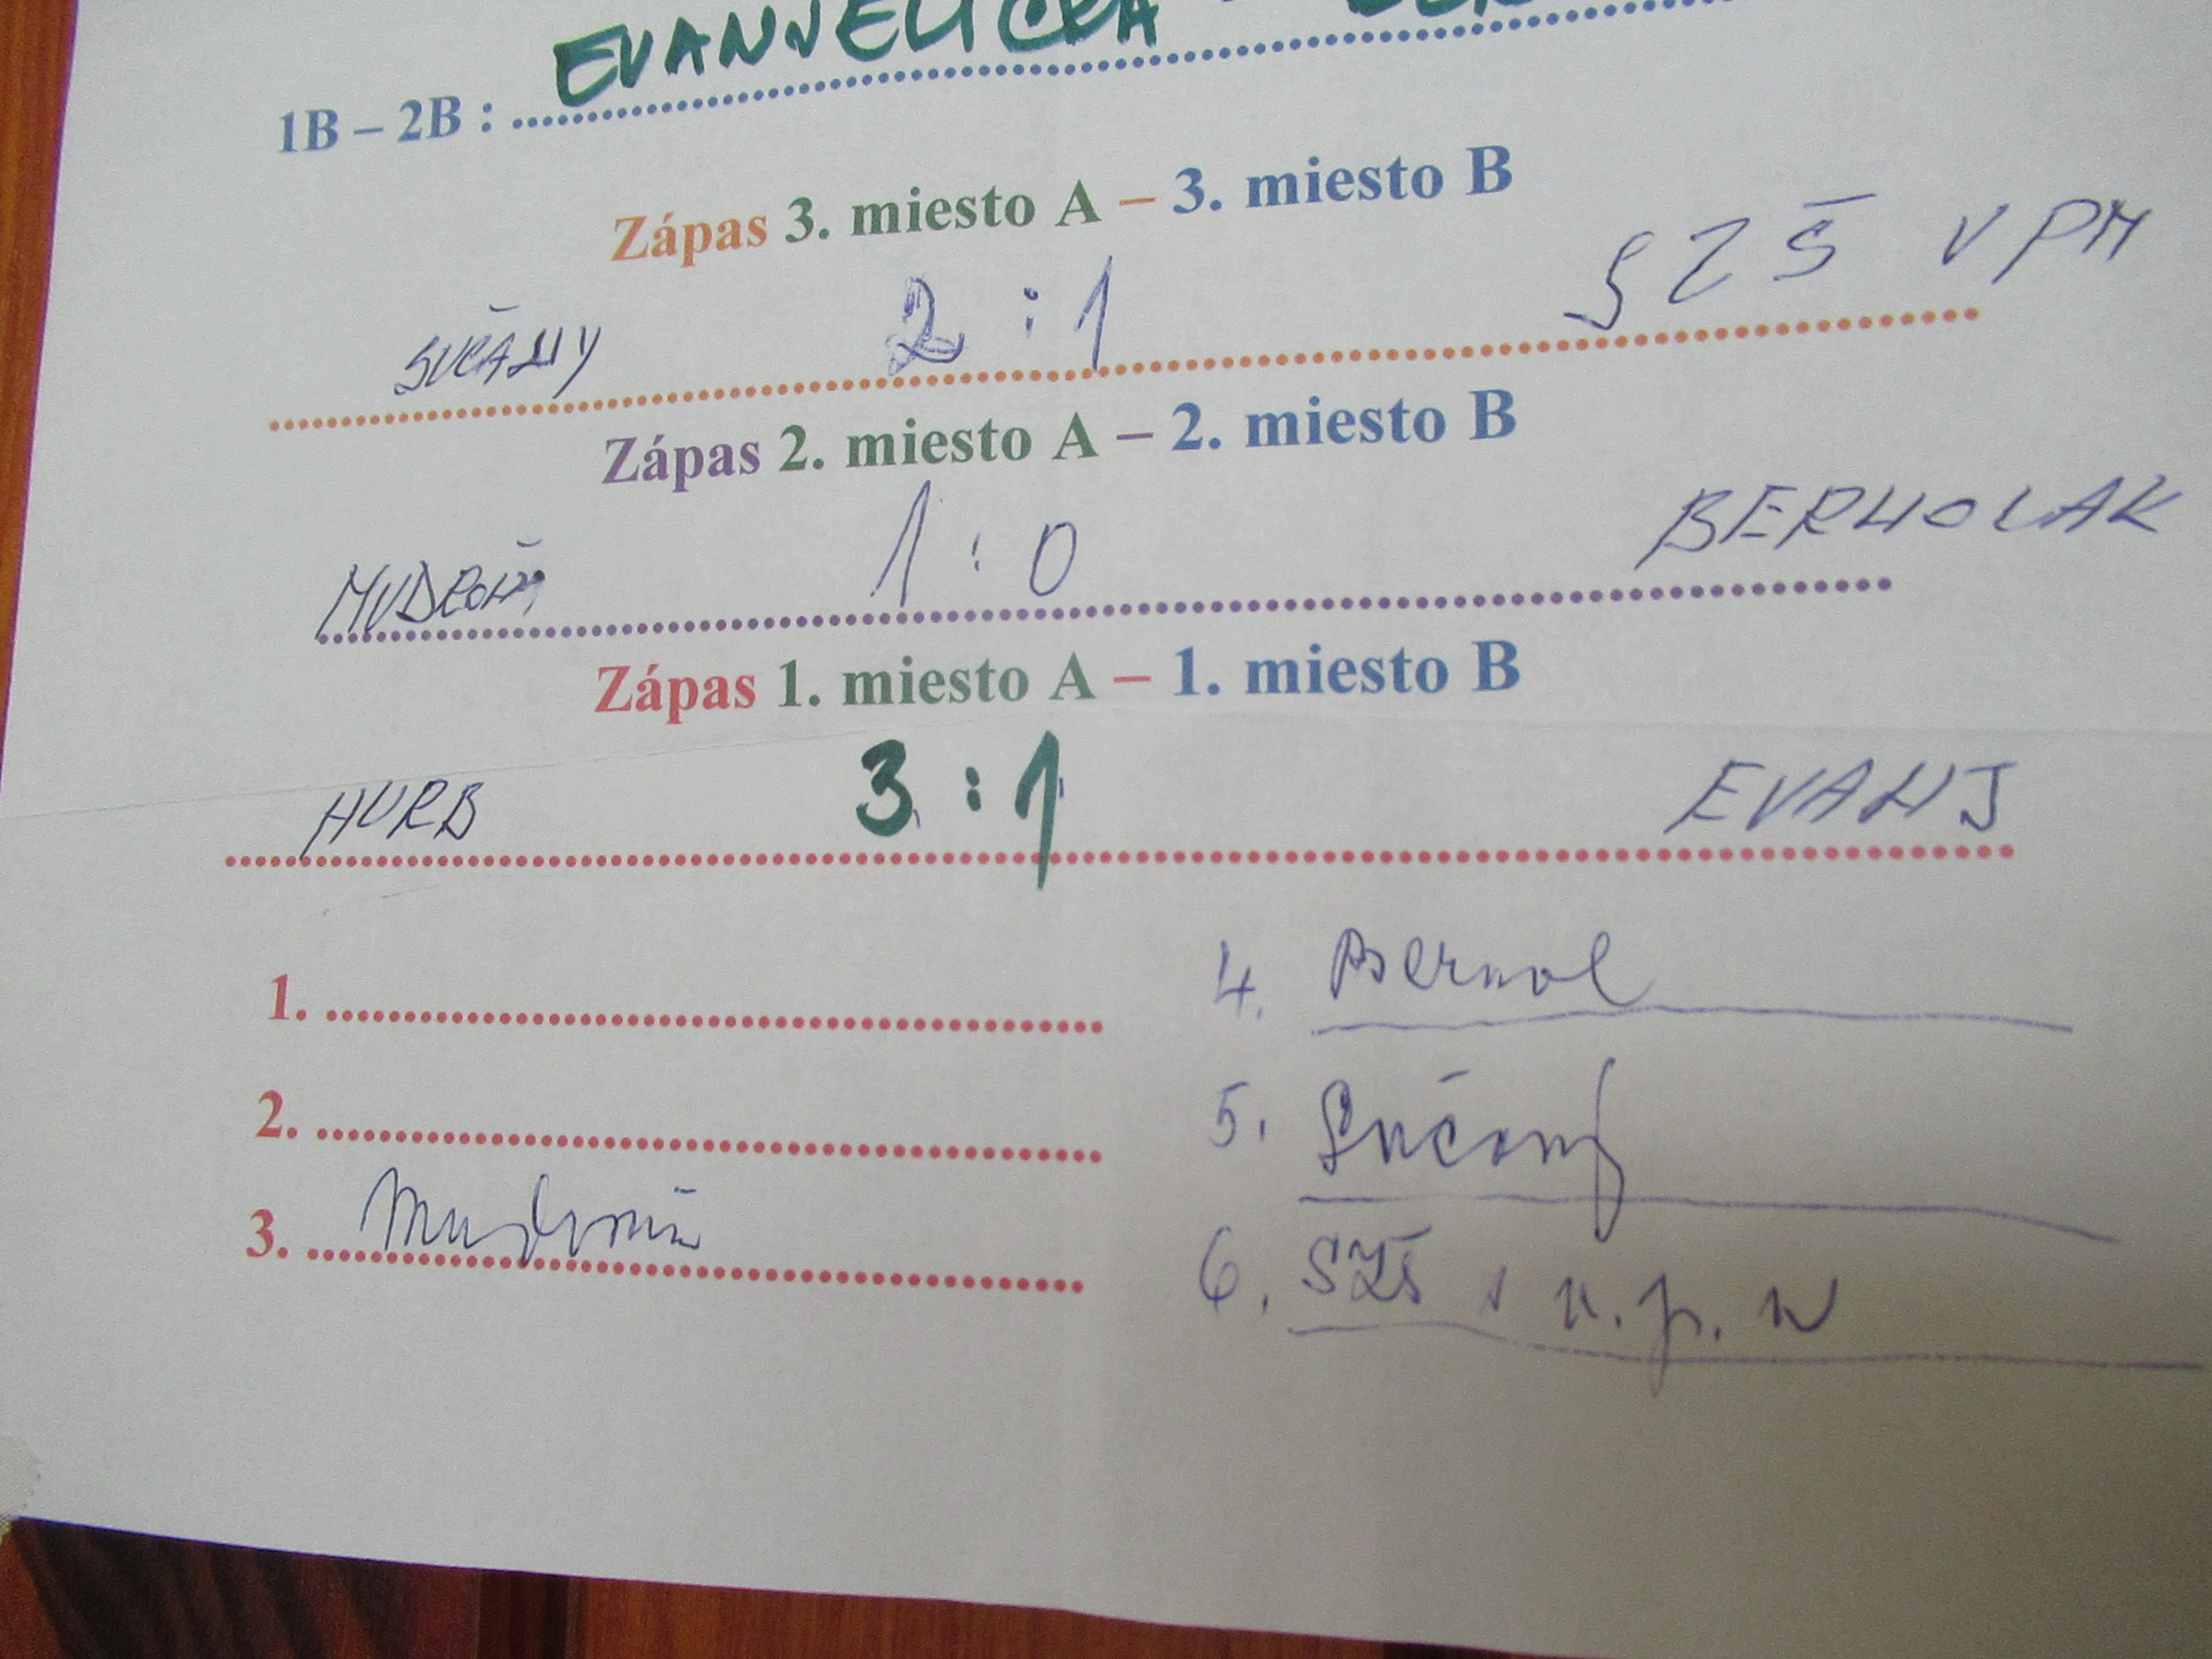 1B – 2B : EVANJELICKÁ -
Zápas 3. miesto A – 3. miesto B
SUČANY 2 : 1 SZŠ VPM
Zápas 2. miesto A – 2. miesto B
MUDROŇ 1 : 0 BERNOLAK
Zápas 1. miesto A – 1. miesto B
HURB 3 : 1 EVANJ
1.
2.
3. Mudroň
4. Bernol
5. Sučany
6. SZŠ s v.p. v